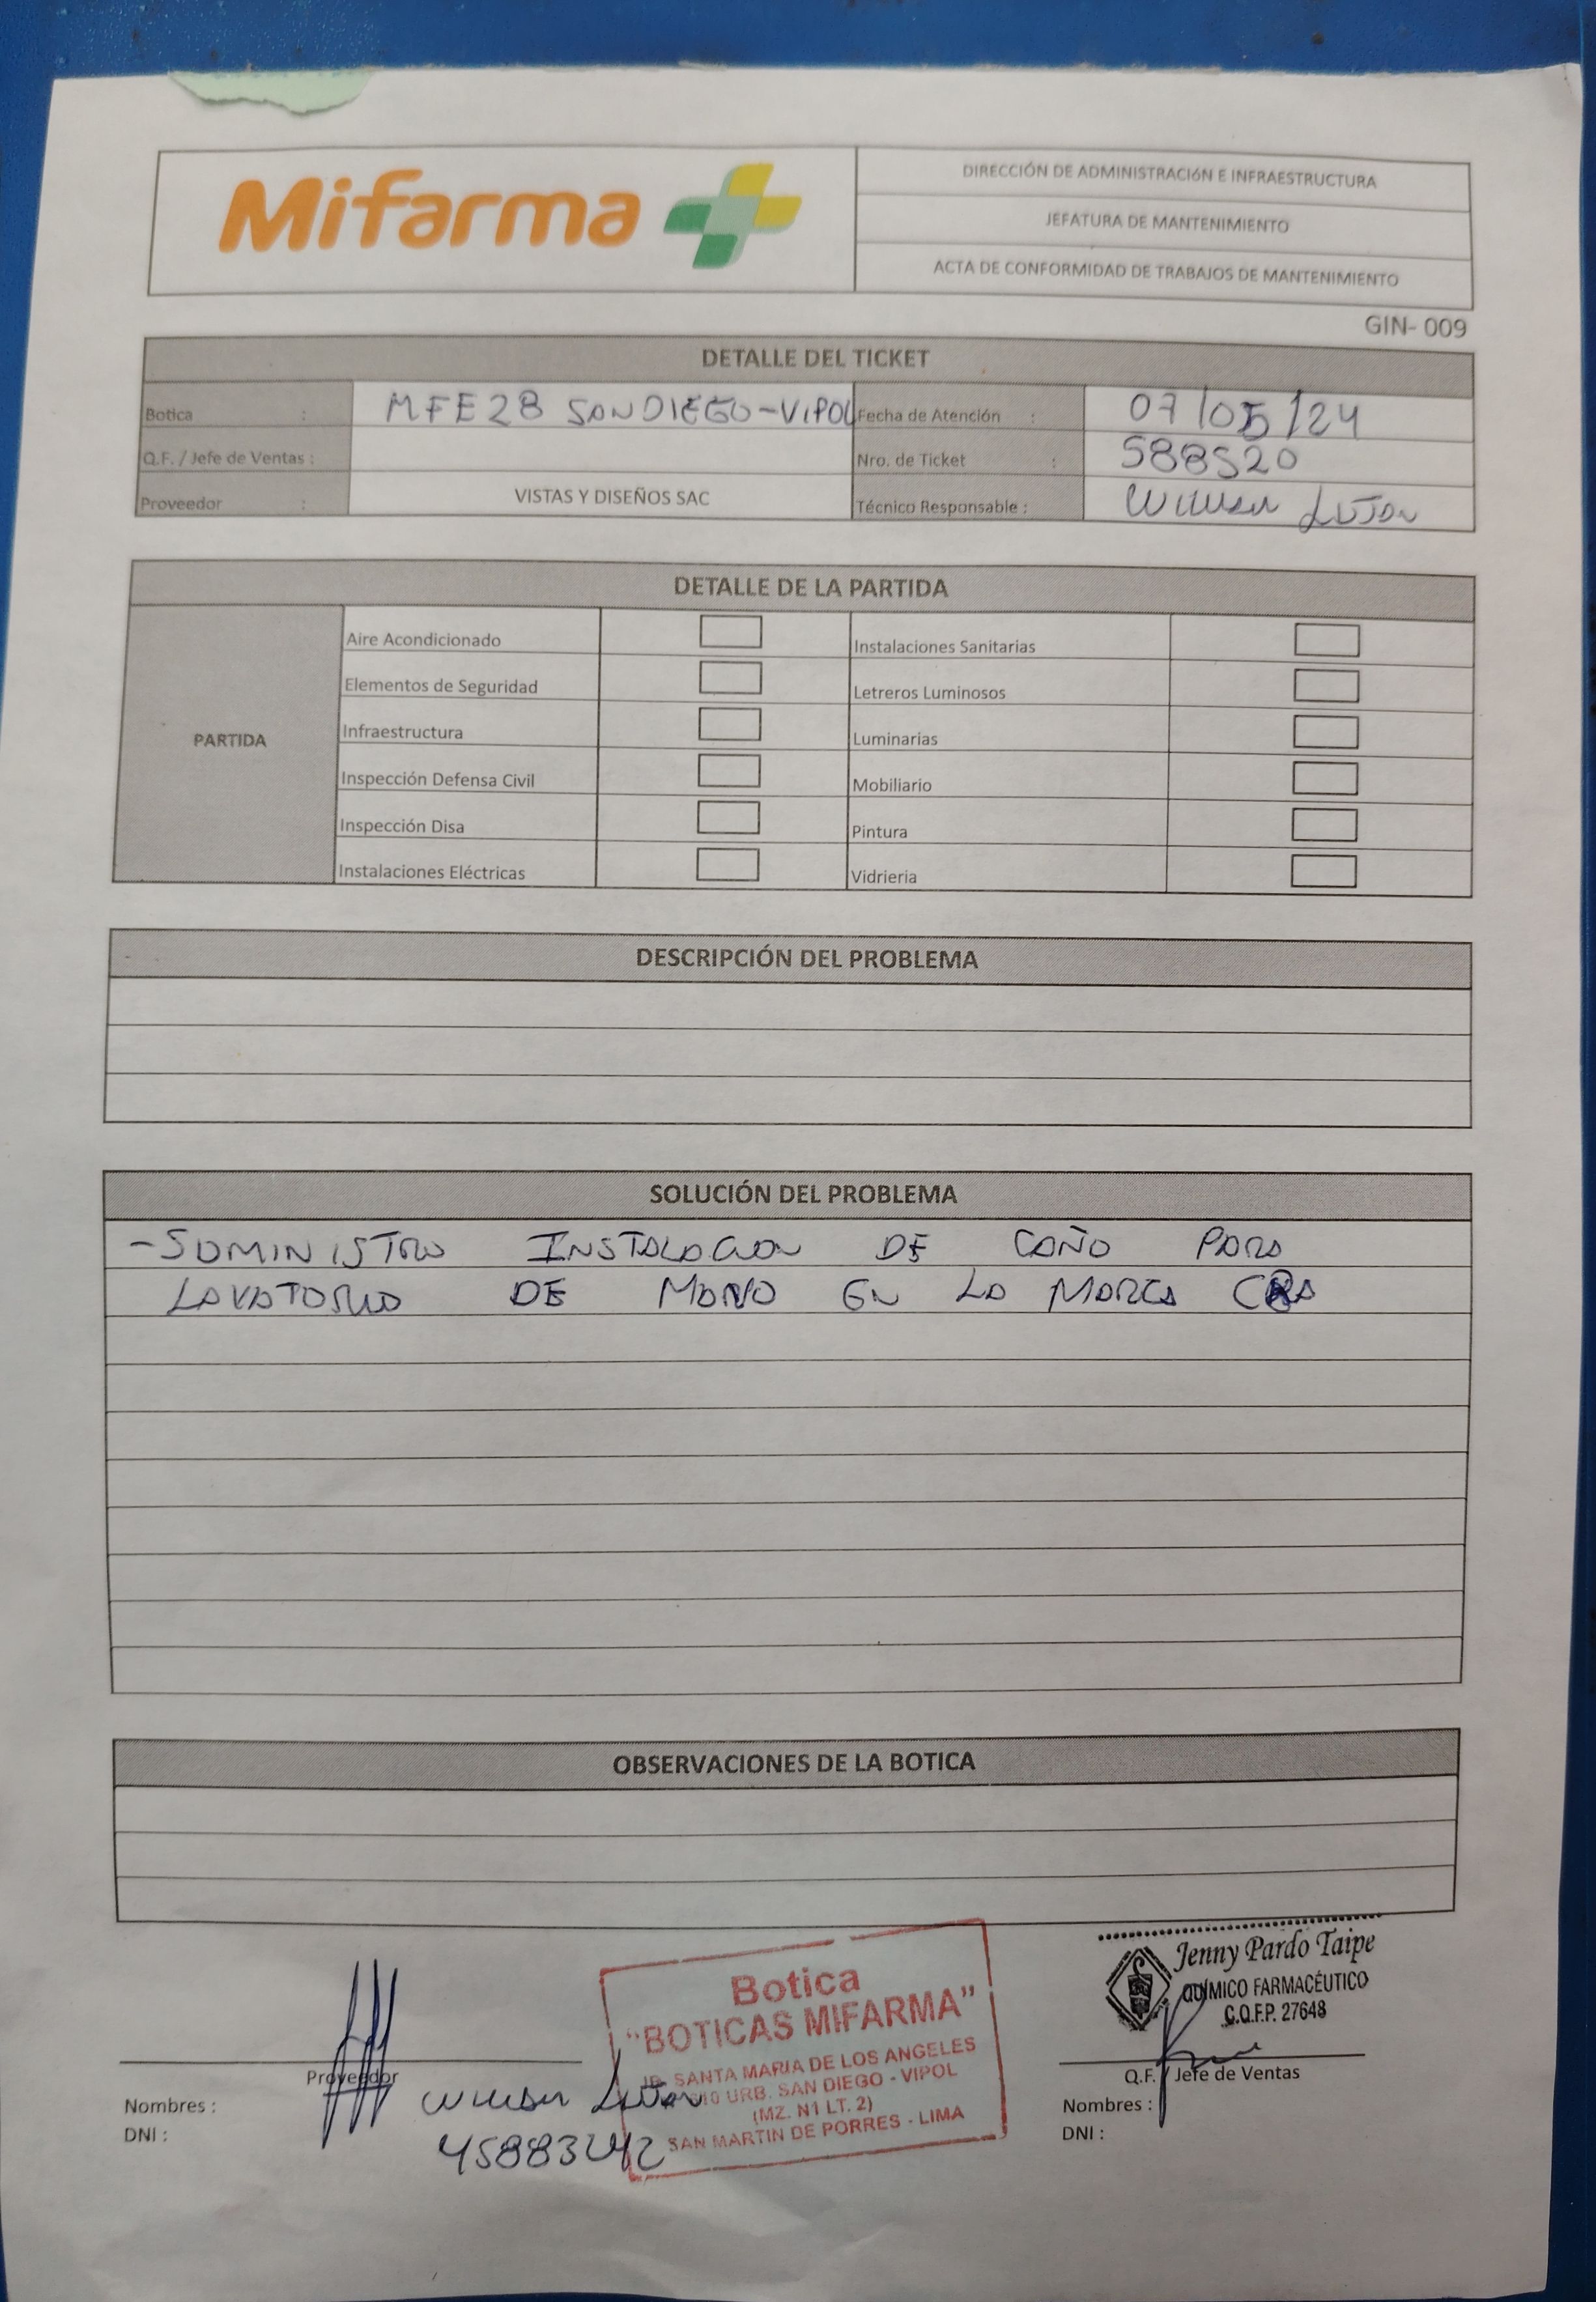 Mifarma
DIRECCIÓN DE ADMINISTRACIóN E INFRAESTRUCTURA
JEFATURA DE MANTENIMIENTO
ACTA DE CONFORMIDAD DE TRABAJOS DE MANTENIMIENTO
GIN- 009
DETALLE DEL TICKET
Botica : MFE28 SAN DIEGO-VIPOL Fecha de Atención : 07/05/24
Q.F. / Jefe de Ventas : Nro. de Ticket : 588520
Proveedor : VISTAS Y DISEÑOS SAC Técnico Responsable : Wilmer LUJAN
DETALLE DE LA PARTIDA
PARTIDA
Aire Acondicionado Instalaciones Sanitarias
Elementos de Seguridad Letreros Luminosos
Infraestructura Luminarias
Inspección Defensa Civil Mobiliario
Inspección Disa Pintura
Instalaciones Eléctricas Vidrieria
DESCRIPCIÓN DEL PROBLEMA
SOLUCIÓN DEL PROBLEMA
-SUMINISTRO INSTALACION DE CAÑO PARA
LAVATORIO DE MANO EN LA MARCA
OBSERVACIONES DE LA BOTICA
Botica
"BOTICAS MIFARMA"
SANTA MARIA DE LOS ANGELES
URB. SAN DIEGO - VIPOL
(MZ. N1 LT. 2)
SAN MARTIN DE PORRES - LIMA
Jenny Pardo Taipe
QUÍMICO FARMACÉUTICO
C.Q.F.P. 27648
Proveedor
Nombres : Wilmer Lujan
DNI : 45883242
Q.F. / Jefe de Ventas
Nombres :
DNI :